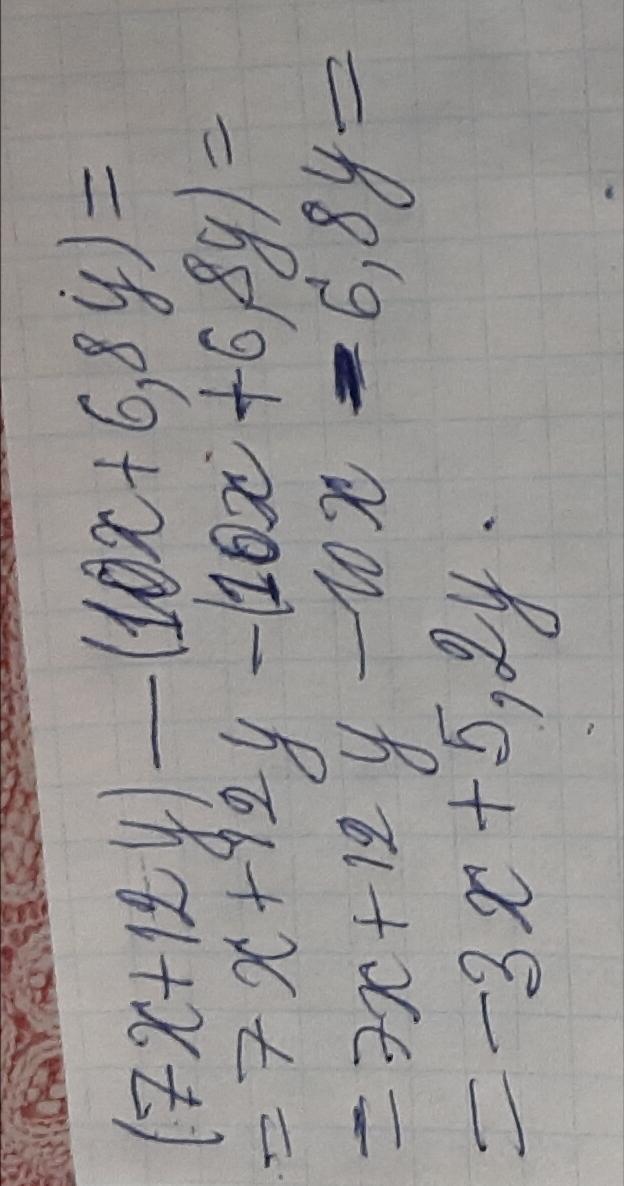 (7x+12y)-(10x+6,8y)=
=7x+12y-(10x+6,8y)=
=7x+12y-10x-6,8y=
=-3x+5,2y.